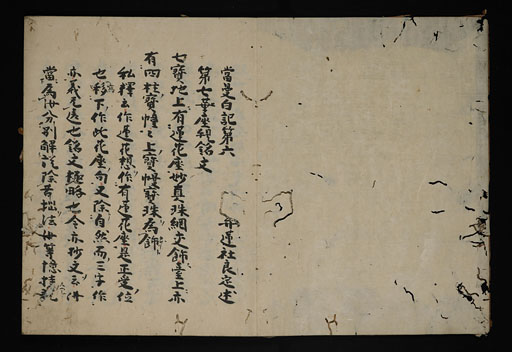 當曼白記第六
弁蓮社良定述
第七華座観銘文
七寳地上有蓮花座妙真珠網交飾臺上亦
有四柱寳幢々上寳幔寳珠為飾
私釋云作蓮花想作有蓮花座是正定位
也移下作此花座句又除自然而三字作
亦義无遠也銘文極略也今亦抄文云
當為汝分別解說除苦惱法汝等憶持